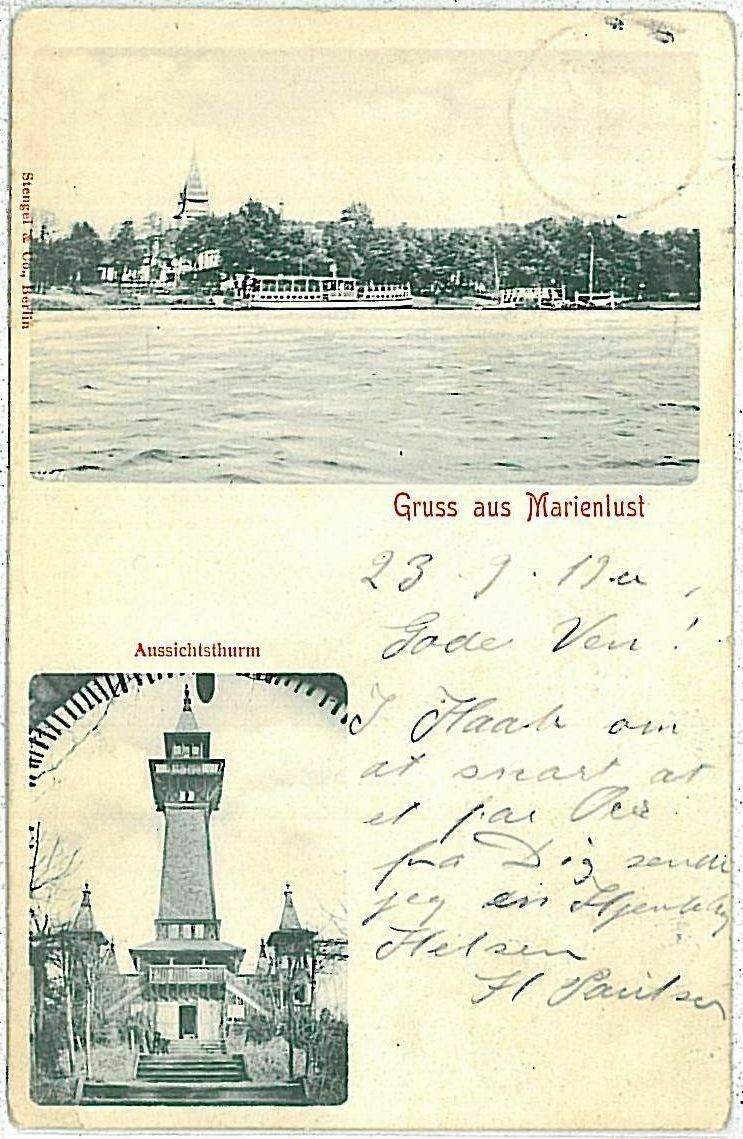 Stengel & Co., Berlin
Gruss aus Marienlust
23. 9. 19
Gode Ven!
Aussichtsthurm
I Haab om
at snart at
et par Ord
fra Dig sender
jeg en Hjertelig
Hilsen
H